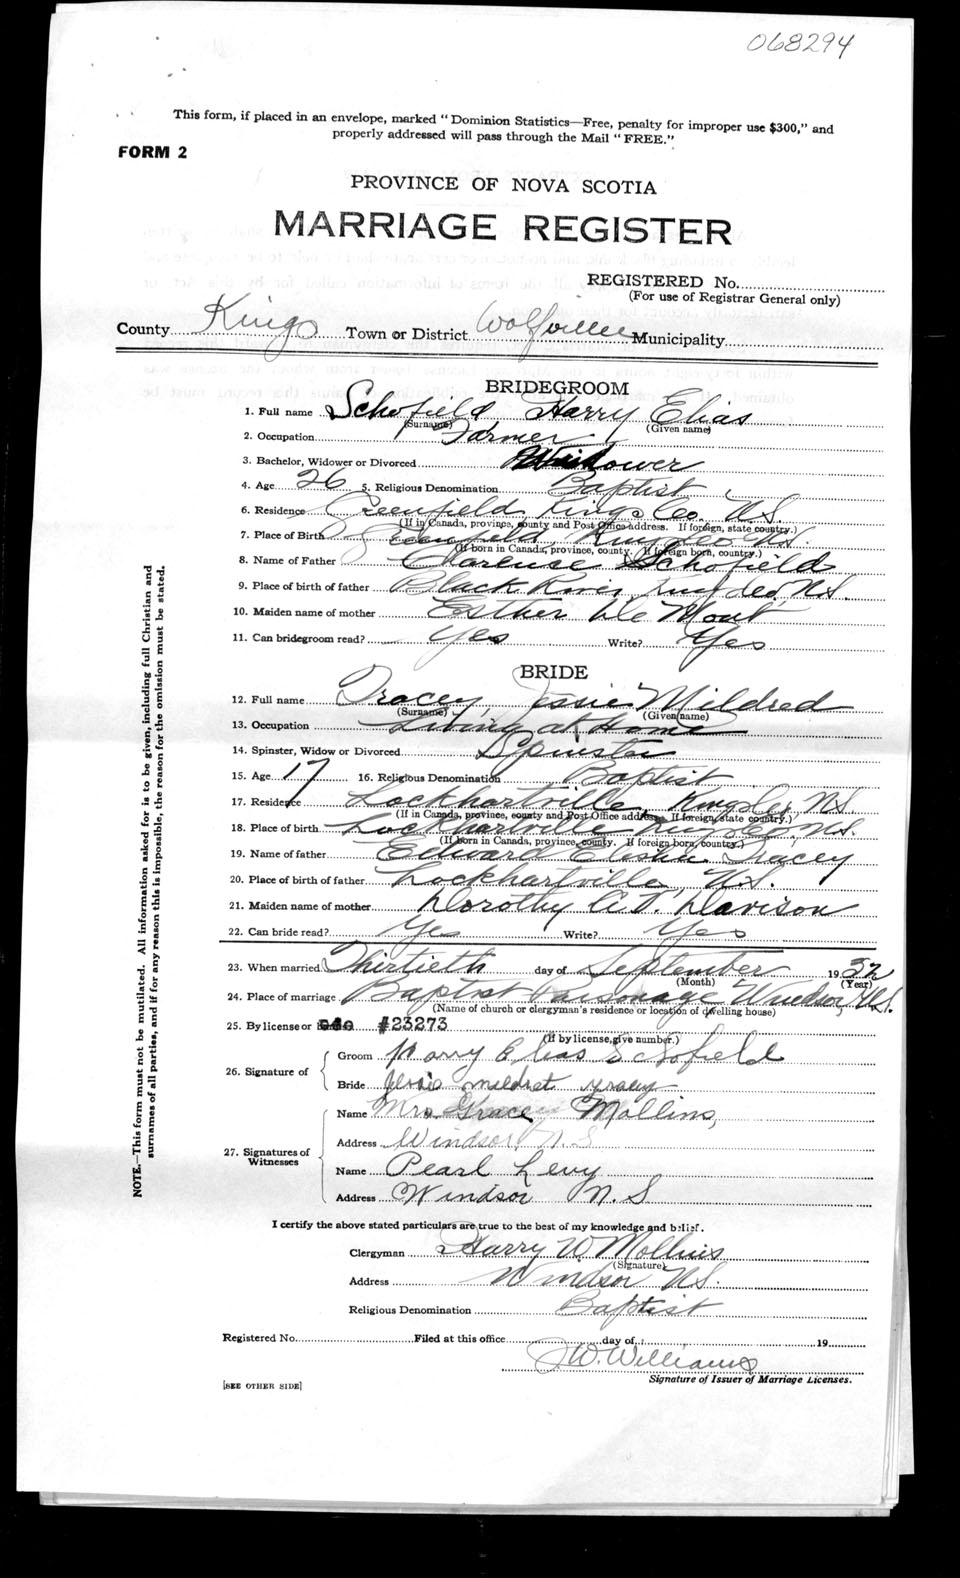 068294
This form, if placed in an envelope, marked "Dominion Statistics—Free, penalty for improper use $300," and
properly addressed will pass through the Mail "FREE."
FORM 2
PROVINCE OF NOVA SCOTIA
MARRIAGE REGISTER
REGISTERED No.
(For use of Registrar General only)
County Kings Town or District Wolfville Municipality
BRIDEGROOM
1. Full name Schofield Harry Elias
(Surname) (Given name)
2. Occupation Farmer
3. Bachelor, Widower or Divorced Widower
4. Age 26 5. Religious Denomination Baptist
6. Residence Greenfield Kings Co. N.S.
(If in Canada, province, county and Post Office address. If foreign, state country.)
7. Place of Birth Greenfield, Kings Co N.S.
(If born in Canada, province, county. If foreign born, country.)
8. Name of Father Clarence Schofield
9. Place of birth of father Black River, Kings Co, N.S.
10. Maiden name of mother Esther De Mont
11. Can bridegroom read? Yes Write? Yes
BRIDE
12. Full name Tracey, Jessie Mildred
(Surname) (Given name)
13. Occupation Living at Home
14. Spinster, Widow or Divorced Spinster
15. Age 17 16. Religious Denomination Baptist
17. Residence Lockhartville, Kings Co, N.S.
(If in Canada, province, county and Post Office address. If foreign, state country.)
18. Place of birth Lockhartville Kings Co. N.S.
(If born in Canada, province, county. If foreign born, country.)
19. Name of father Edward Tracey
20. Place of birth of father Lockhartville, N.S.
21. Maiden name of mother Dorothy Davison
22. Can bride read? Yes Write? Yes
23. When married Thirtieth day of September 1932
(Month) (Year)
24. Place of marriage Baptist Parsonage Windsor, N.S.
(Name of church or clergyman's residence or location of dwelling house)
25. By license or #23273
(If by license, give number.)
26. Signature of
Groom Harry Elias Schofield
Bride Jessie mildret tracey
27. Signatures of Witnesses
Name Mrs. Grace Mollins,
Address Windsor, N.S
Name Pearl Levy
Address Windsor N.S
I certify the above stated particulars are true to the best of my knowledge and belief.
Clergyman Harry W Mollins
(Signature)
Address Windsor N.S.
Religious Denomination Baptist
Registered No. Filed at this office day of 19
J.W. Williams
Signature of Issuer of Marriage Licenses.
[SEE OTHER SIDE]
NOTE.—This form must not be mutilated. All information asked for is to be given, including full Christian and
surnames of all parties, and if for any reason this is impossible, the reason for the omission must be stated.